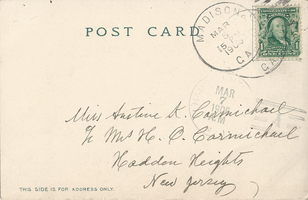 POST CARD
MADISON
MAR
1906
GA
MAR
2
1906
Miss Austine K. Carmichael
℅ Mrs H. O. Carmichael
Haddon Heights
New Jersey
THIS SIDE IS FOR ADDRESS ONLY.